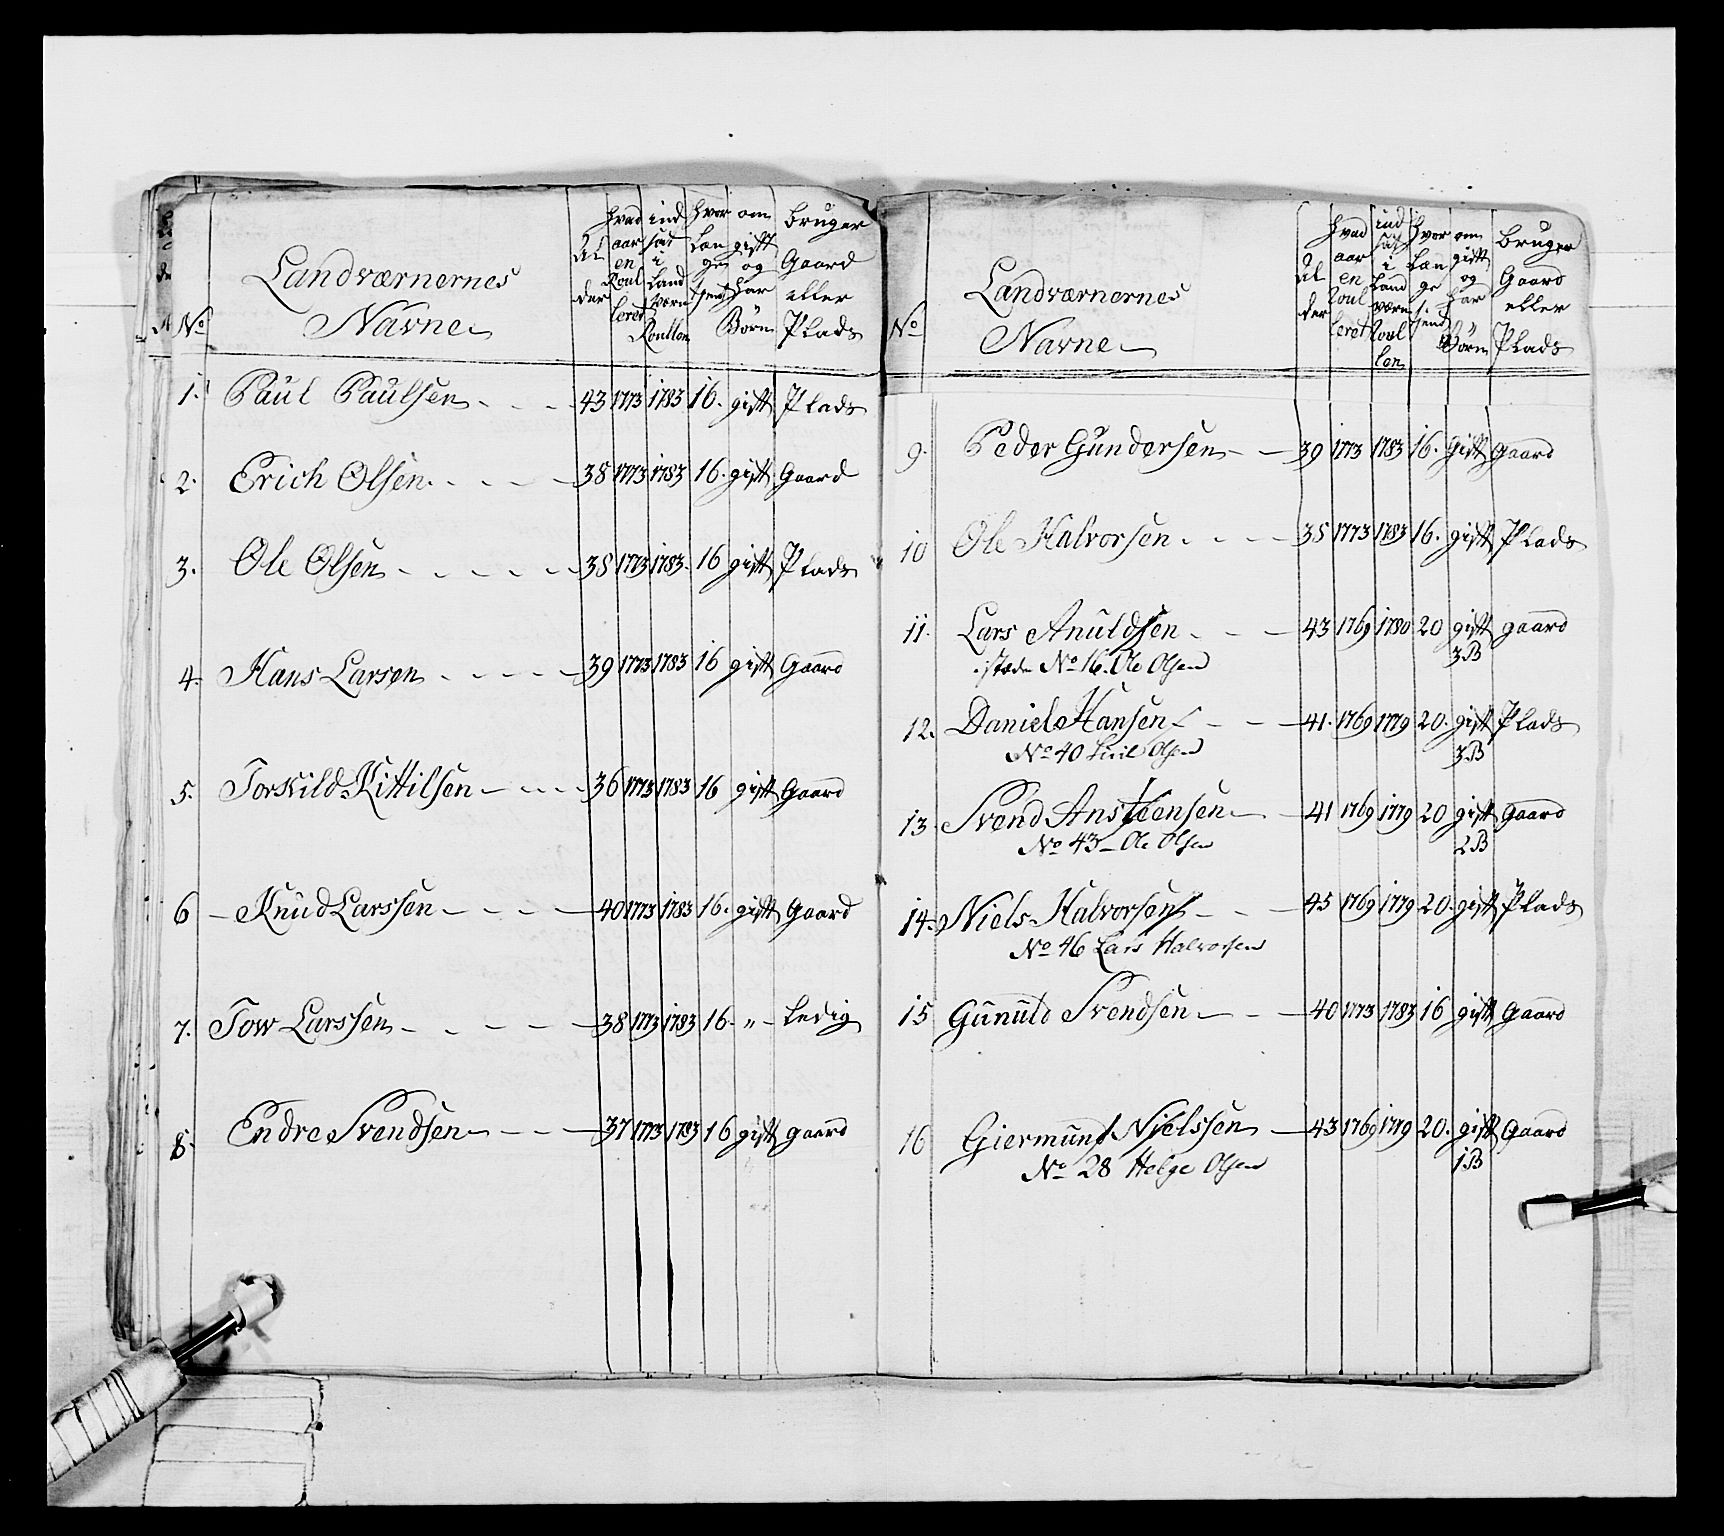 No
Landværnernes
Navne
Al
der
hvad
aar
en
Roul
leret
ind
sat
i
Land
værn
Roullen
hvor
Læn
ge
tient
om
gift
og
har
Børn
bruger
Gaard
eller
Plads
1. Paul Paulsen - - - 43 1773 1783 16. gift Plads
2. Erich Olsen - - - - 38 1773 1783 16. gift Gaard
3. Ole Olsen - - - - - 38 1773 1783. 16 gift Plads
4. Hans Larsen - - - - 39 1773 1783 16 gift Gaard
5. Torkild Kittilsen - - - - 36 1773 1783 16 gift Gaard
6 - Knud Larssen - - - - 40 1773 1783 16. gift Gaard
7. Tow Larssen - - - - - 38 1773 1783 16 - " - Ledig
8. Endre Svendsen - - - 37 1773 1783 16 gift gaard
No
Landværnernes
Navne
Al
der
hvad
aar
en
Roul
leret
ind
sat
i
Land
værn
Roul
len
hvor
Læn
ge
tient
om
gift
og
har
Børn
bruger
Gaard
eller
Plads
9. Peder Gundersen - - 39 1773 1783 16. gift Gaard
10 Ole Halvorsen - - - - 35 1773 1783 16. gift Plads
11. Lars Anuldsen - - - 43 1769 1780 20 gift gaard
i stæden No 16. Ole Olsen 3B
12. Daniel Hansen - - - 41. 1769 1779 20. gift Plads
No 40 Olsen 3B
13 Svend Ansteensen - - 41 1769 1779 20 gift Gaard
No 43 - Ole Olsen 2B
14. Niels Halvorsen - - - 45 1769 1779 20. gift Plads
No 46 Lars Halvorsen
15 Gunuld Svendsen - - - 40 1773 1783 16 gift Gaard
16 Giermund Nielssen - 43 1769 1779 20. gift Gaard
No 28 Helge Olsen 1B